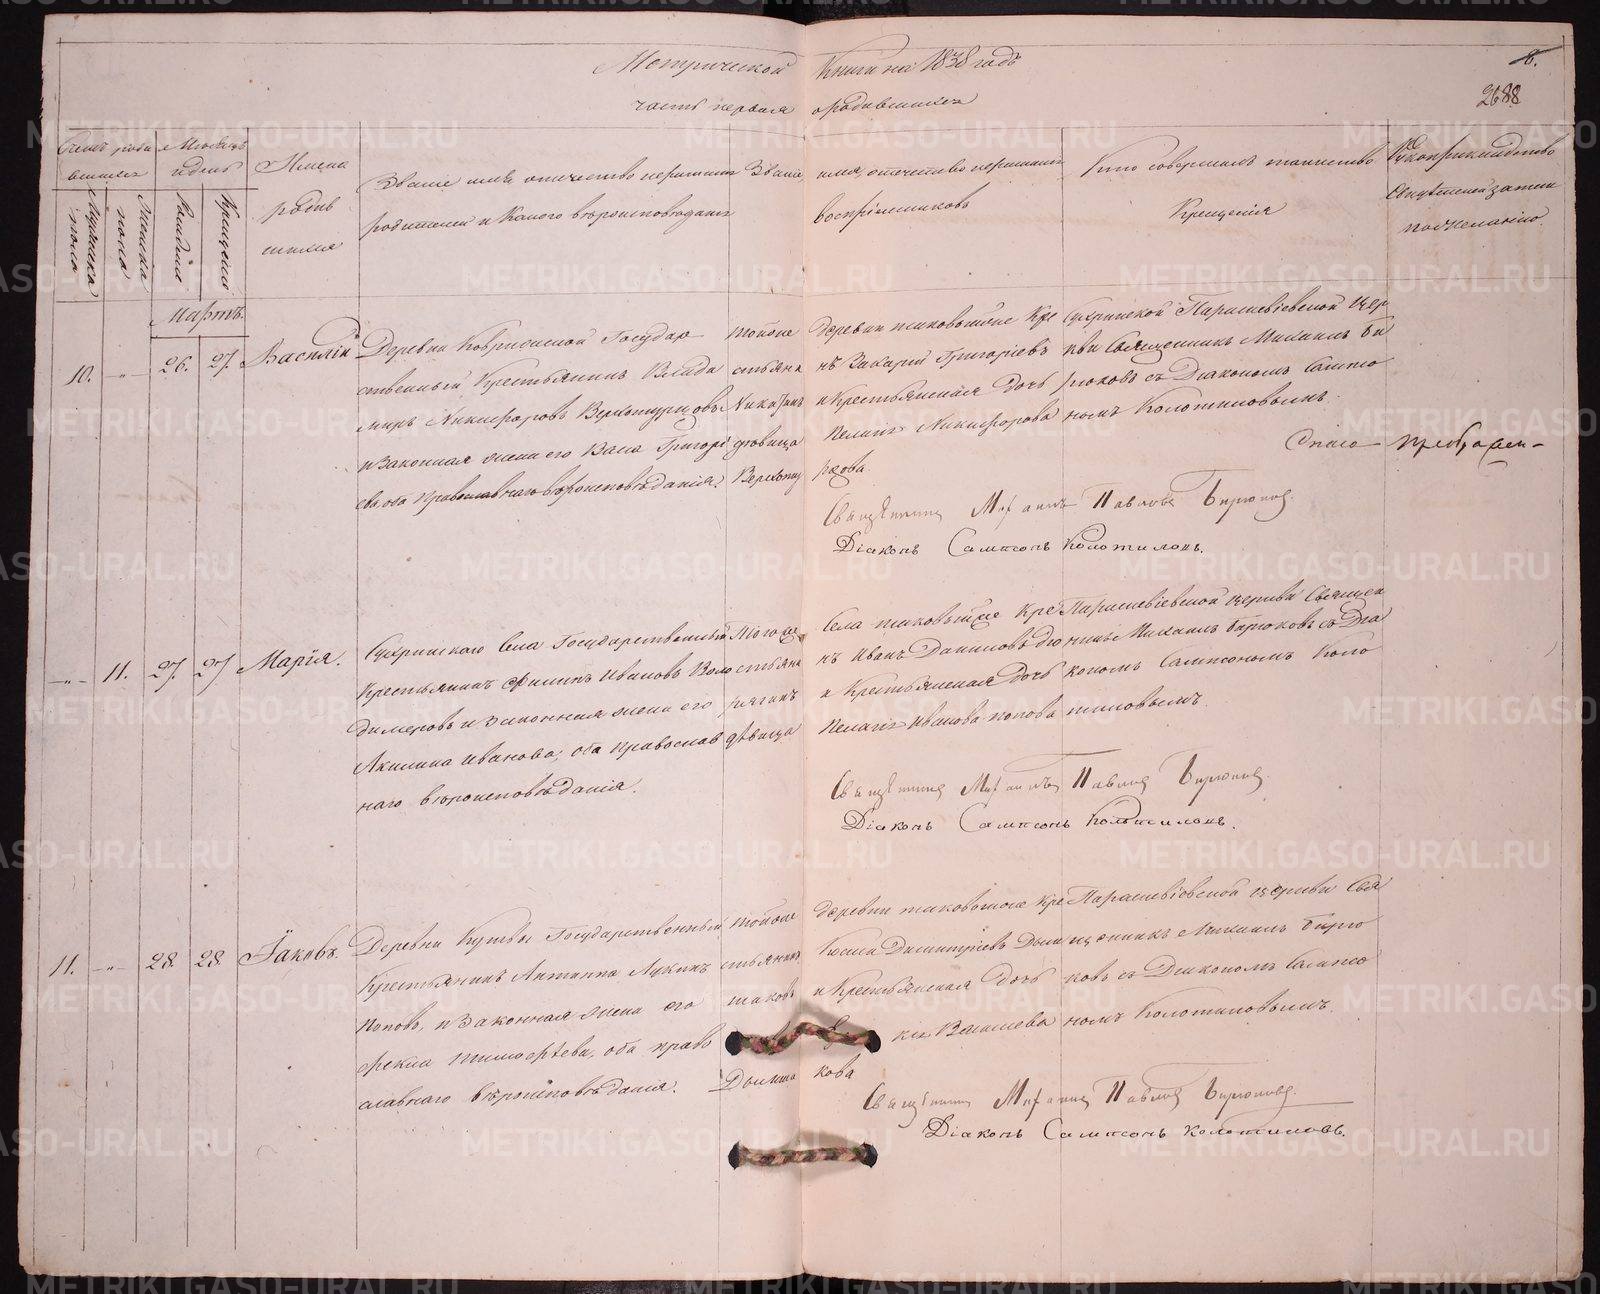 Метрической Книги на 1838 годъ
часть первая о родившихся
8.
2688
Счетъ роди
вшихся
Мужеска
пола
Женска
пола
Месяцъ
и день
Рождения
Крещения
Имена
родив
шихся
Звание имя, отчество
родителей и какого вероисповедания
Звание, имя, отчество
воспріемниковъ
Кто совершалъ таинство
Крещенія
Рукоприкладство
свидетелей записи
по желанію.
Мартъ.
10. -„- 26. 27. Василій
Деревни Государ
ственный Крестьянинъ Влади
миръ Никифоровъ Верхотурцовъ
и законная жена его Васса Григорі
ева, оба православнаго вероисповеданія.
тойже деревни таковыйже Кре
стьянинъ Захарій Григоріевъ
и Крестьянская дочь
девица Пелагія Никифорова
Верхотурцова.
Сухринской Параскевіевской Цер
кви Священникъ Михаилъ Би
рюковъ съ Діакономъ Сампсо
номъ Колотиловымъ.
Спасо - преображен-
Священникъ Михаилъ Павловъ Бирюковъ.
Діаконъ Сампсонъ Колотиловъ.
-„- 11. 27. 27 Марія.
Сухринскаго Села Государственный
Крестьянинъ Филипъ Ивановъ Воло
димеровъ и законная жена его
Акилина Иванова, оба православ
наго вероисповеданія.
тогоже Села таковыйже Кре
стьянинъ Иванъ Даниловъ
и Крестьянская дочь
девица Пелагія Иванова Попова
Параскевіевской церкви Священ
никъ Михаилъ Бирюковъ съ Діа
кономъ Сампсономъ Коло
тиловымъ.
Священникъ Михаилъ Павловъ Бирюковъ.
Діаконъ Сампсонъ Колотиловъ.
11. -„- 28. 28. Іаковъ.
Деревни Государственный
Крестьянинъ Антипа Лукинъ
Поповъ, и законная жена его
Фекла Тимофеева, оба право
славнаго вероисповеданія.
тойже деревни таковыйже Кре
стьянинъ Косма Димитріевъ
и Крестьянская дочь
Дьячкова
Параскевіевской церкви Свя
щенникъ Михаилъ Бирю
ковъ съ Діакономъ Сампсо
номъ Колотиловымъ.
Священникъ Михаилъ Павловъ Бирюковъ.
Діаконъ Сампсонъ Колотиловъ.
METRIKI.GASO-URAL.RU